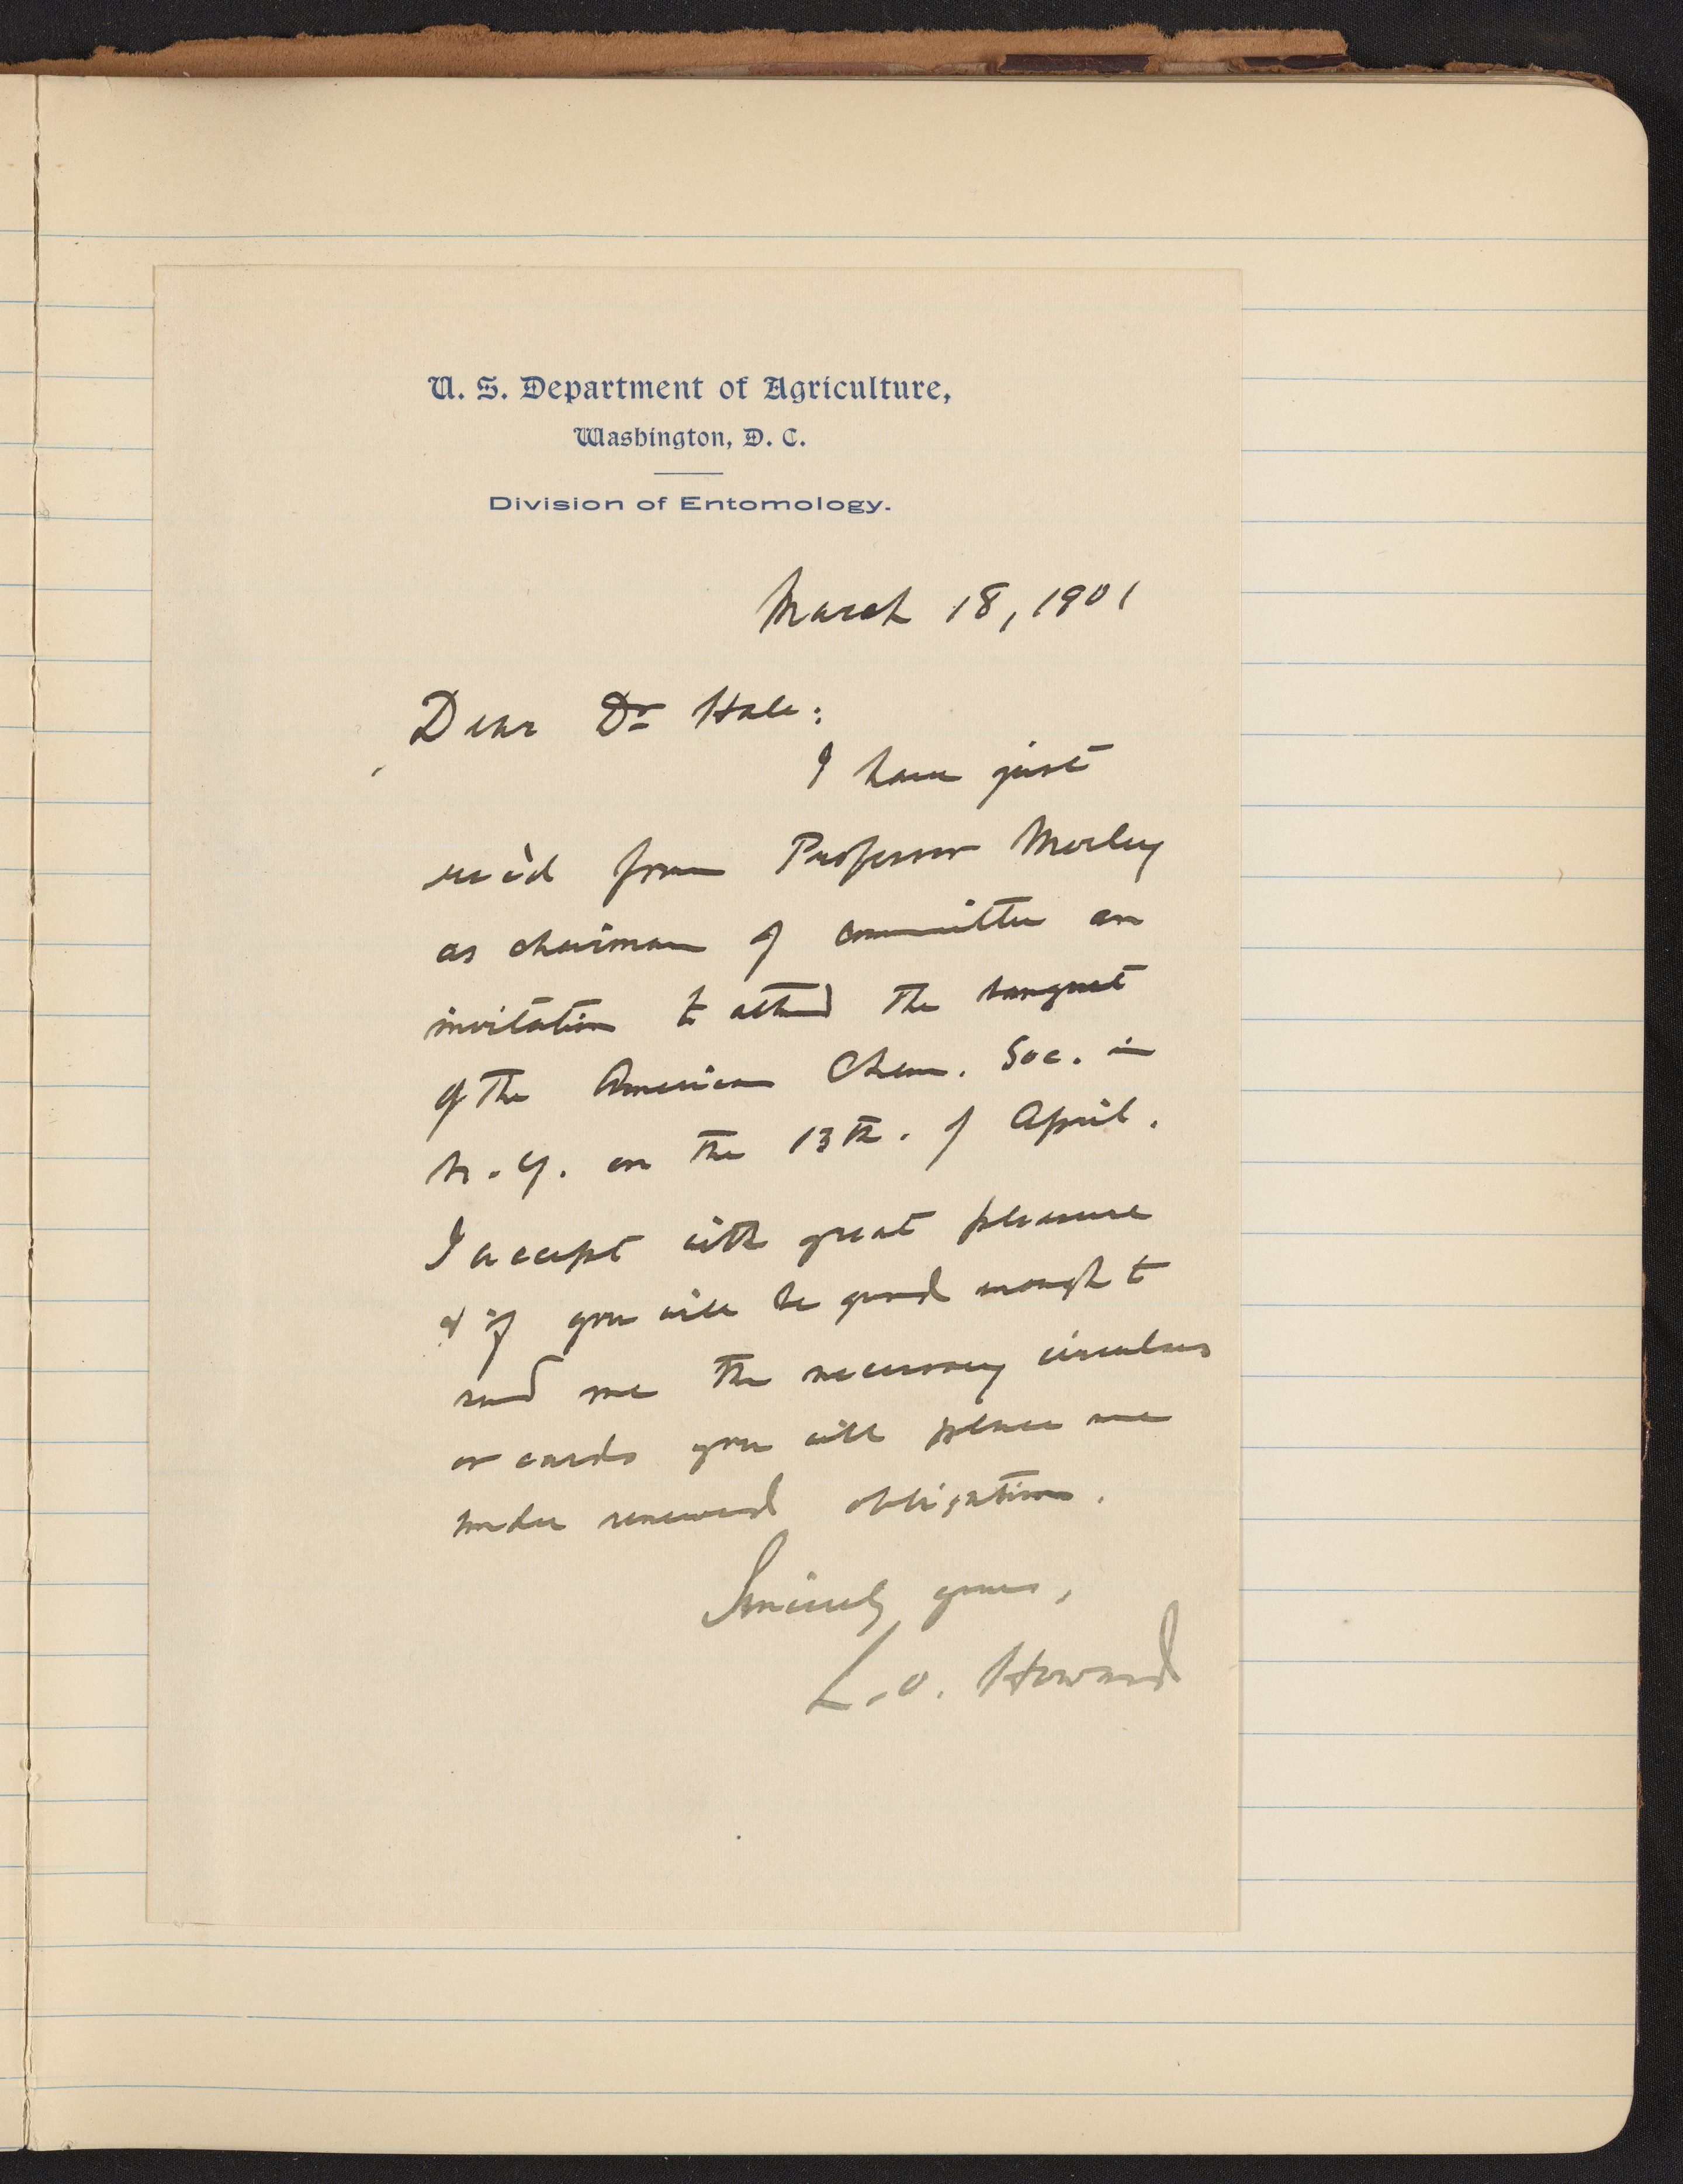 U. S. Department of Agriculture,
Washington, D. C.
Division of Entomology.
March 18, 1901
Dear Dr Hale:
I have just
rec'd from Professor Morley
as chairman of committee an
invitation to attend the banquet
of the American Chem. Soc. in
N. Y. on the 13th. of April.
I accept with great pleasure
& if you will be good enough to
send me the necessary circulars
or cards you will place me
under renewed obligations.
Sincerely yours,
L. O. Howard